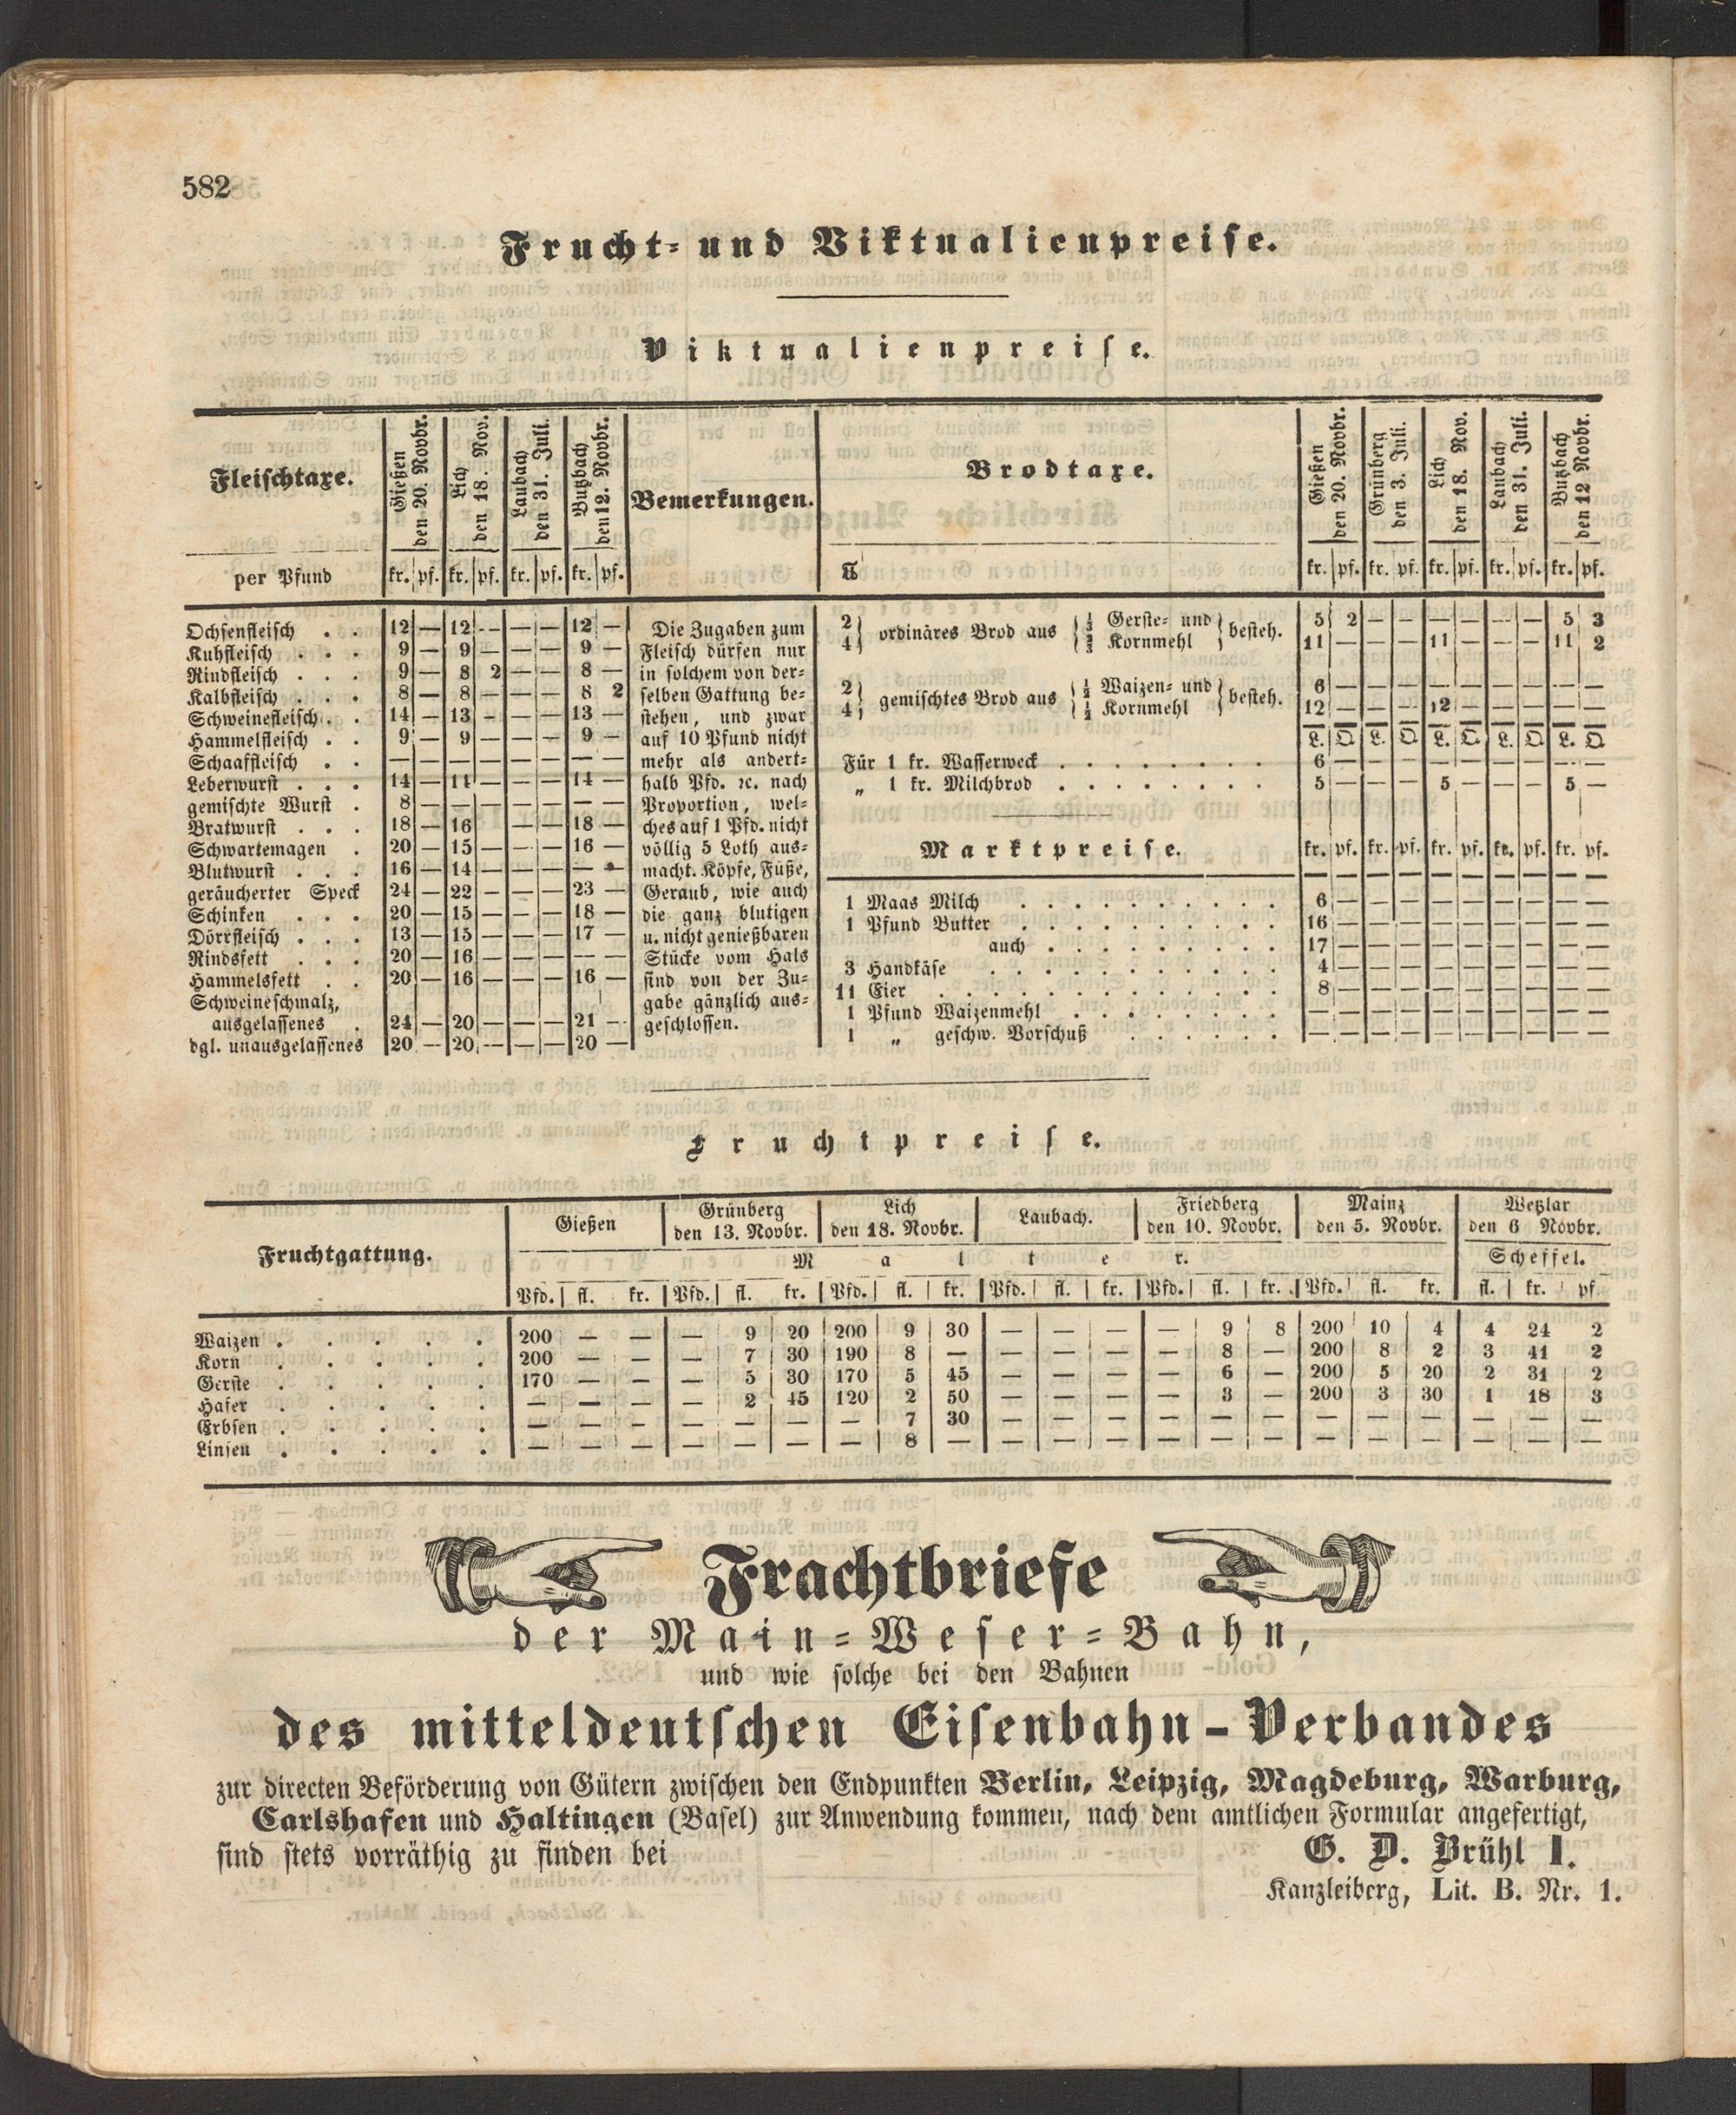 582
Frucht- und Viktualienpreise.
Viktualienpreise.
Fleischtaxe. | Gießen den 20. Novbr. | Lich den 18. Nov. | Laubach den 31. Juli. | Butzbach den 12. Novbr. | Bemerkungen.
per Pfund | kr. | pf. | kr. | pf. | kr. | pf. | kr. | pf.
Ochsenfleisch . . | 12 | — | 12 | — | — | — | 12 | —
Kuhfleisch . . . | 9 | — | 9 | — | — | — | 9 | —
Rindfleisch . . . | 9 | — | 8 | 2 | — | — | 8 | —
Kalbfleisch . . . | 8 | — | 8 | — | — | — | 8 | 2
Schweinefleisch . . | 14 | — | 13 | — | — | — | 13 | —
Hammelfleisch . . | 9 | — | 9 | — | — | — | 9 | —
Schaaffleisch . . | — | — | — | — | — | — | — | —
Leberwurst . . . | 14 | — | 11 | — | — | — | 14 | —
gemischte Wurst . | 8 | — | — | — | — | — | — | —
Bratwurst . . . | 18 | — | 16 | | — | — | 18 | —
Schwartemagen . | 20 | — | 15 | — | — | — | 16 | —
Blutwurst . . . | 16 | — | 14 | — | — | — | — | —
geräucherter Speck | 24 | — | 22 | — | — | — | 23 | —
Schinken . . . | 20 | — | 15 | — | — | — | 18 | —
Dörrfleisch . . . | 13 | — | 15 | — | — | — | 17 | —
Rindsfett . . . | 20 | — | 16 | — | — | — | — | —
Hammelsfett . . | 20 | — | 16 | — | — | — | 16 | —
Schweineschmalz,
ausgelassenes . | 24 | — | 20 | — | — | — | 21 | —
dgl. unausgelassenes | 20 | — | 20 | — | — | — | 20 | —
Die Zugaben zum
Fleisch dürfen nur
in solchem von der-
selben Gattung be-
stehen, und zwar
auf 10 Pfund nicht
mehr als andert-
halb Pfd. ꝛc. nach
Proportion, wel-
ches auf 1 Pfd. nicht
völlig 5 Loth aus-
macht. Köpfe, Füße,
Geraub, wie auch
die ganz blutigen
u. nicht genießbaren
Stücke vom Hals
sind von der Zu-
gabe gänzlich aus-
geschlossen.
Brodtaxe. | Gießen den 20. Novbr. | Grünberg den 3. Juli. | Lich den 18. Nov. | Laubach den 31. Juli. | Butzbach den 12 Novbr.
℔ | kr. | pf. | kr. | pf. | kr. | pf. | kr. | pf. | kr. | pf.
2 } ordinäres Brod aus { ⅓ Gerste- und } besteh. | 5 | 2 | — | — | — | — | — | — | 5 | 3
4 } { ⅔ Kornmehl } | 11 | — | — | — | 11 | — | — | — | 11 | 2
2 } gemischtes Brod aus { ½ Waizen- und } besteh. | 6 | — | — | — | — | — | — | — | — | —
4 } { ½ Kornmehl } | 12 | — | — | — | 12 | — | — | — | — | —
L. | Q. | L. | Q. | L. | Q. | L. | Q. | L. | Q.
Für 1 kr. Wasserweck . . . . . . . . . | 6 | — | — | — | — | — | — | — | — | —
„ 1 kr. Milchbrod . . . . . . . . | 5 | — | — | — | 5 | — | — | — | 5 | —
Marktpreise. | kr. | pf. | kr. | pf. | kr. | pf. | kr. | pf. | kr. | pf.
1 Maas Milch . . . . . . . . . . | 6 | — | — | — | — | — | — | — | — | —
1 Pfund Butter . . . . . . . . . . | 16 | — | — | — | — | — | — | — | — | —
auch . . . . . . . . . | 17 | — | — | — | — | — | — | — | — | —
3 Handkäse . . . . . . . . . . . | 4 | — | — | — | — | — | — | — | — | —
11 Eier . . . . . . . . . . . . . | 8 | — | — | — | — | — | — | — | — | —
1 Pfund Waizenmehl . . . . . . . . | — | — | — | — | — | — | — | — | — | —
1 „ geschw. Vorschuß . . . . . . | — | — | — | — | — | — | — | — | — | —
Fruchtpreise.
Fruchtgattung. | Gießen | Grünberg den 13. Novbr. | Lich den 18. Novbr. | Laubach. | Friedberg den 10. Novbr. | Mainz den 5. Novbr. | Wetzlar den 6 Novbr.
Malter. | Scheffel.
Pfd. | fl. | kr. | Pfd. | fl. | kr. | Pfd. | fl. | kr. | Pfd. | fl. | kr. | Pfd. | fl. | kr. | Pfd. | fl. | kr. | fl. | kr. | pf.
Waizen . . . . . | 200 | — | — | — | 9 | 20 | 200 | 9 | 30 | — | — | — | — | 9 | 8 | 200 | 10 | 4 | 4 | 24 | 2
Korn . . . . . | 200 | — | — | — | 7 | 30 | 190 | 8 | — | — | — | — | — | 8 | — | 200 | 8 | 2 | 3 | 41 | 2
Gerste . . . . . | 170 | — | — | — | 5 | 30 | 170 | 5 | 45 | — | — | — | — | 6 | — | 200 | 5 | 20 | 2 | 31 | 2
Hafer . . . . . | — | — | — | — | 2 | 45 | 120 | 2 | 50 | — | — | — | — | 3 | — | 200 | 3 | 30 | 1 | 18 | 3
Erbsen . . . . . | — | — | — | — | — | — | — | 7 | 30 | — | — | — | — | — | — | — | — | — | — | — | —
Linsen . . . . . | — | — | — | — | — | — | — | 8 | — | — | — | — | — | — | — | — | — | — | — | — | —
Frachtbriefe
der Main-Weser-Bahn,
und wie solche bei den Bahnen
des mitteldeutschen Eisenbahn-Verbandes
zur directen Beförderung von Gütern zwischen den Endpunkten Berlin, Leipzig, Magdeburg, Warburg,
Carlshafen und Haltingen (Basel) zur Anwendung kommen, nach dem amtlichen Formular angefertigt,
sind stets vorräthig zu finden bei
G. D. Brühl I.
Kanzleiberg, Lit. B. Nr. 1.